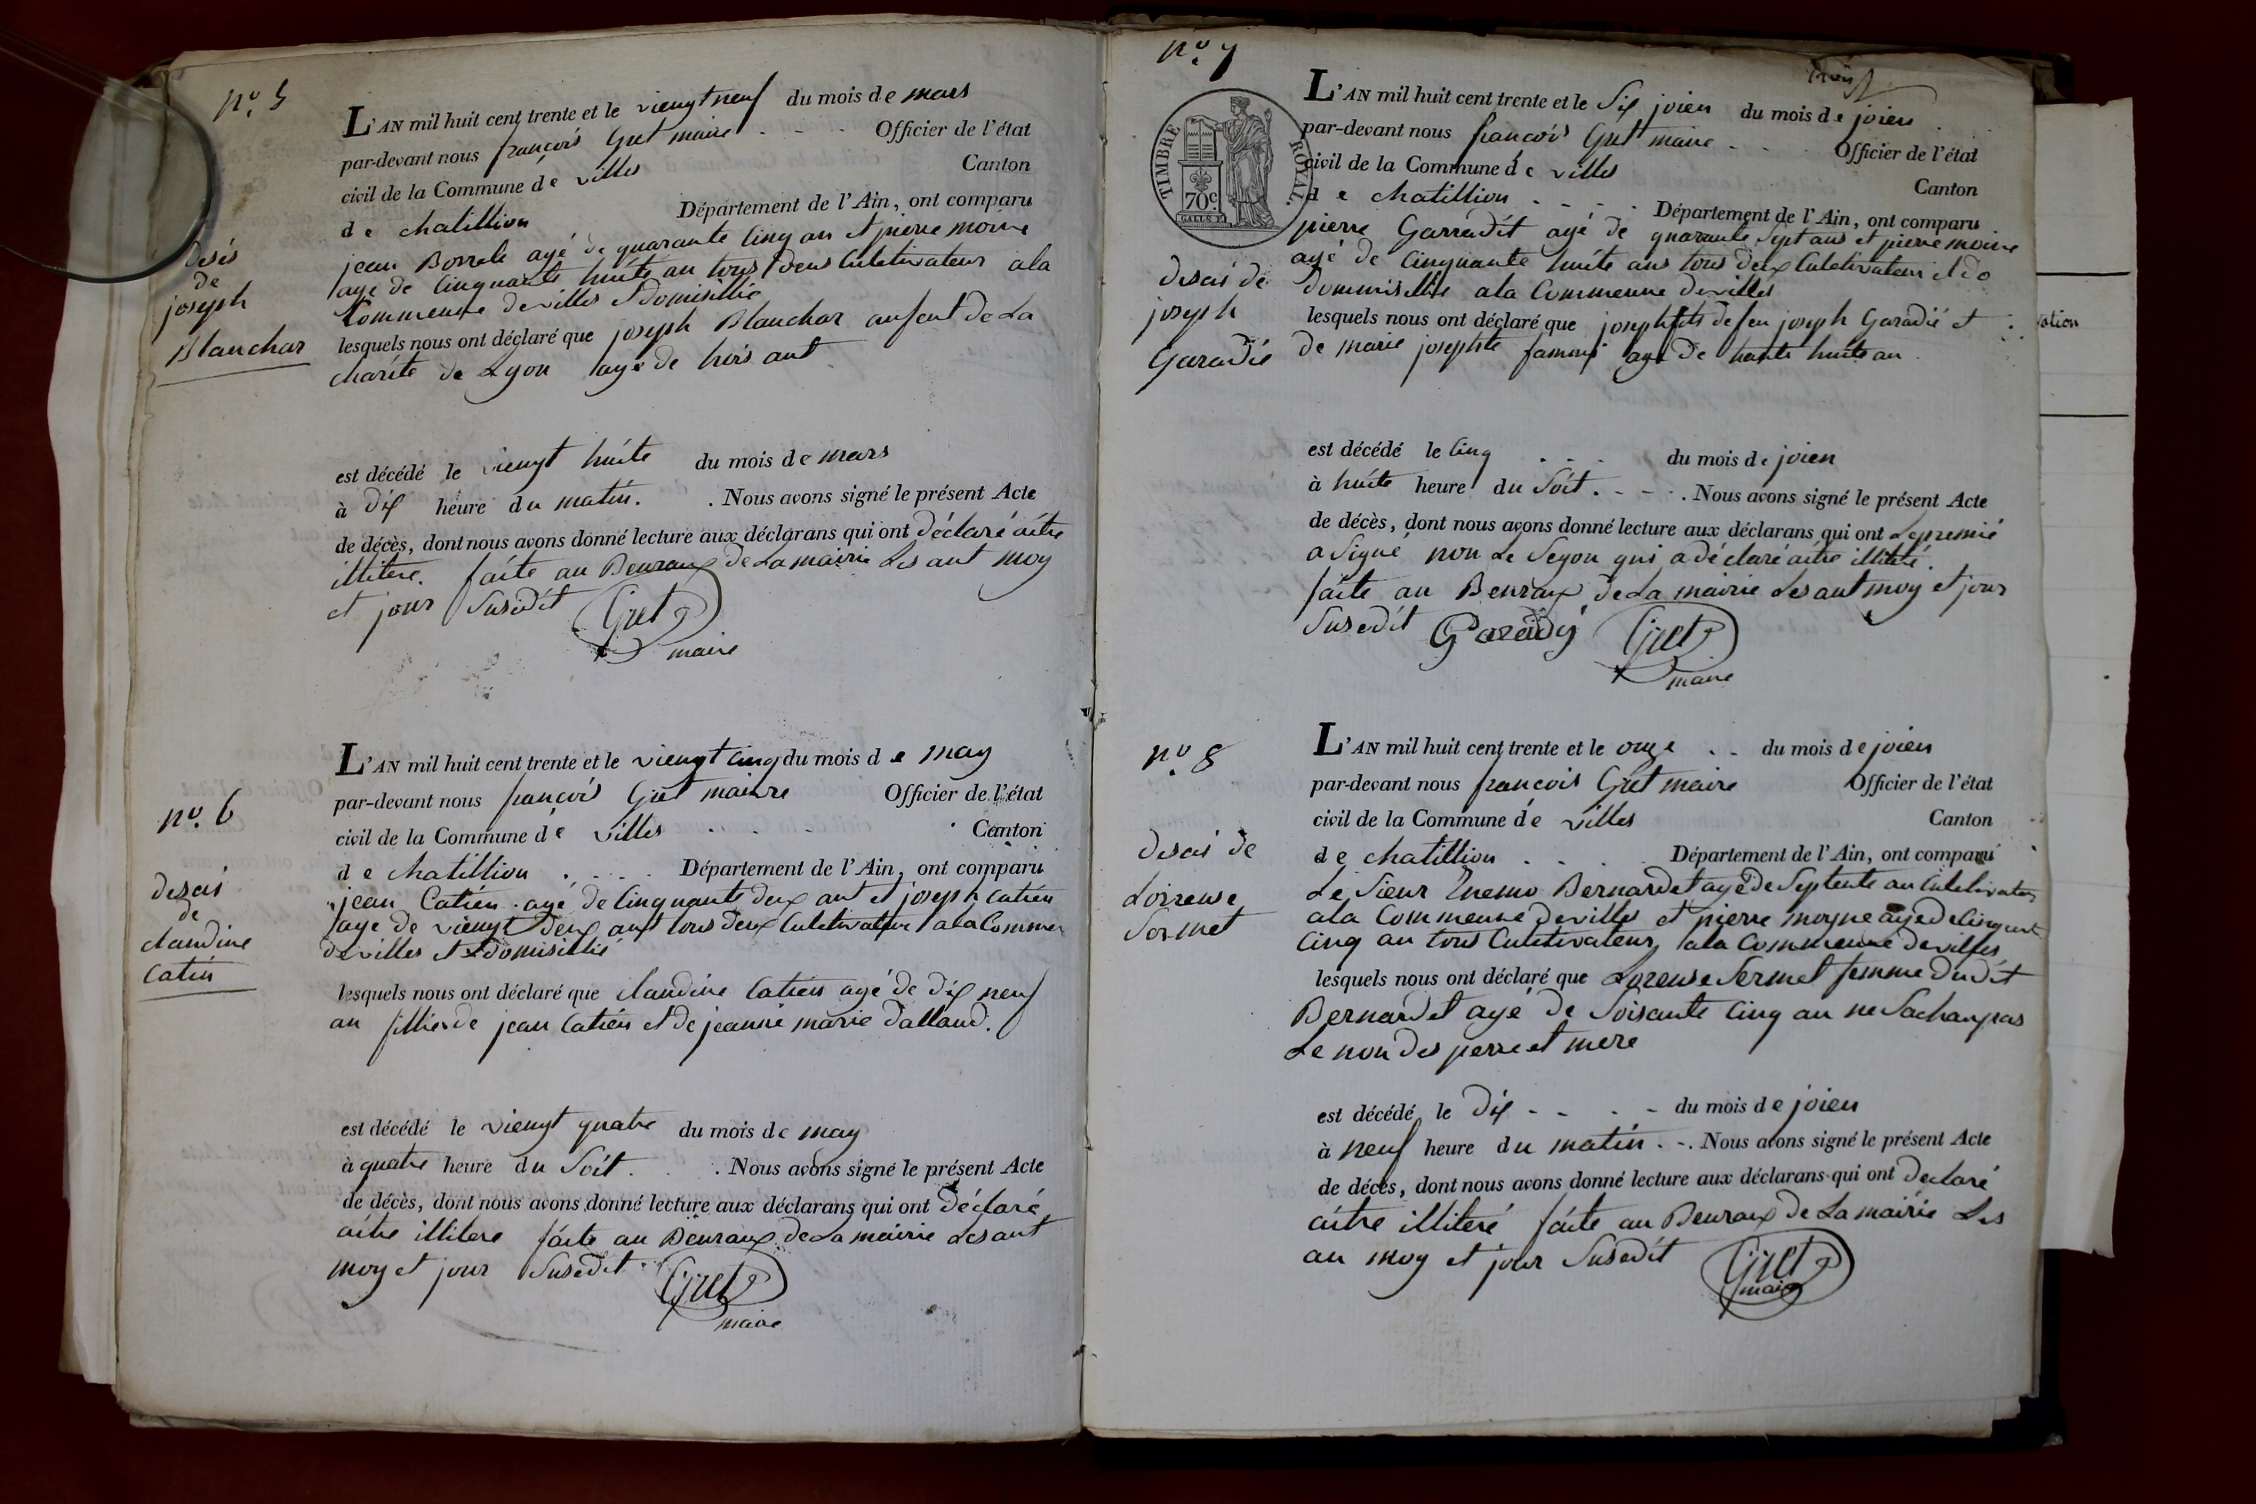 nº. 5
L'AN mil huit cent trente et le viengt neuf du mois de mars
par-devant nous françois Gret maire Officier de l'état
civil de la Commune dé villes Canton
de chatillion Département de l'Ain, ont comparu
jean Borrele agé de quarante cinq an et pierre moine
agé de cinquante huite an tous deus Culetivateur ala
Commeune devilles et domisillié
lesquels nous ont déclaré que joseph Blanchar anfent de La
charité de Lyon agé de trois ant
desés
de
joseph
Blanchar
est décédé le viengt huite du mois de mars
à dix heure du matin. Nous avons signé le présent Acte
de décès, dont nous avons donné lecture aux déclarans qui ont déclaré aitre
illitere. faite au Beuraux de La mairie Les ant moy
et jour Susedit Gret
maire
nº. 6
L'AN mil huit cent trente et le viengt cinq du mois de may
par-devant nous françois Gret maire Officier de l'état
civil de la Commune dé villes Canton
de chatillion Département de l'Ain, ont comparu
jean Catien agé de Cinquante deux ant et joseph catien
agé de viengt deux ant tous deux Culetivateur ala Commen
devilles et domisillié
lesquels nous ont déclaré que claudine Catien agé de dix neuf
an fillie de jean Catien et de jeanne marie dalland.
desais
de
claudine
catien
est décédé le viengt quatre du mois de may
à quatre heure du Soit. Nous avons signé le présent Acte
de décès, dont nous avons donné lecture aux déclarans qui ont déclaré
aitre illitere faite au Beuraux de La mairie Les ant
moy et jour Susedit. Gret
maire
nº. 7
TIMBRE ROYAL.
70c.
L'AN mil huit cent trente et le Six joien du mois de joien
par-devant nous françois Gret maire Officier de l'état
civil de la Commune dé villes Canton
de chatillion Département de l'Ain, ont comparu
pierre Garradit agé de quarante Sept ans et pierre moine
agé de Cinquante huite ans tous deux Culetivateur et do
dommisillié ala Commeune devilles
lesquels nous ont déclaré que joseph fils de feu joseph Garadié et
de marie josephte famoux agé de trante huite an
desais de
joseph
Garadié
est décédé le Cinq du mois de joien
à huite heure du Soit. Nous avons signé le présent Acte
de décès, dont nous avons donné lecture aux déclarans qui ont Le premié
a Signé non Le Segon qui a déclaré aitre illiteré.
faite au Beuraux de La mairie Les ant moy et jour
Susedit Garady Gret
maire
nº. 8
L'AN mil huit cent trente et le onze du mois de joien
par-devant nous françois Gret maire Officier de l'état
civil de la Commune dé villes Canton
de chatillion Département de l'Ain, ont comparu
Le Sieur Enemo Bernardet agé de Septente an Culetivateur
ala Commeune devilles et pierre moyne agé de Cinquent
Cinq an tous Culetivateur ala Commeune devilles
lesquels nous ont déclaré que Lorense Sermet femme dudit
Bernardet agé de Soisante Cinq an ne Sachan pas
Le non des perre et mere
desais de
Loirense
Sermet
est décédé le dix du mois de joien
à neuf heure du matin. Nous avons signé le présent Acte
de décès, dont nous avons donné lecture aux déclarans qui ont declaré
aitre illiteré faite au Beuraux de La mairie Les
an moy et jour Susedit Gret
maire